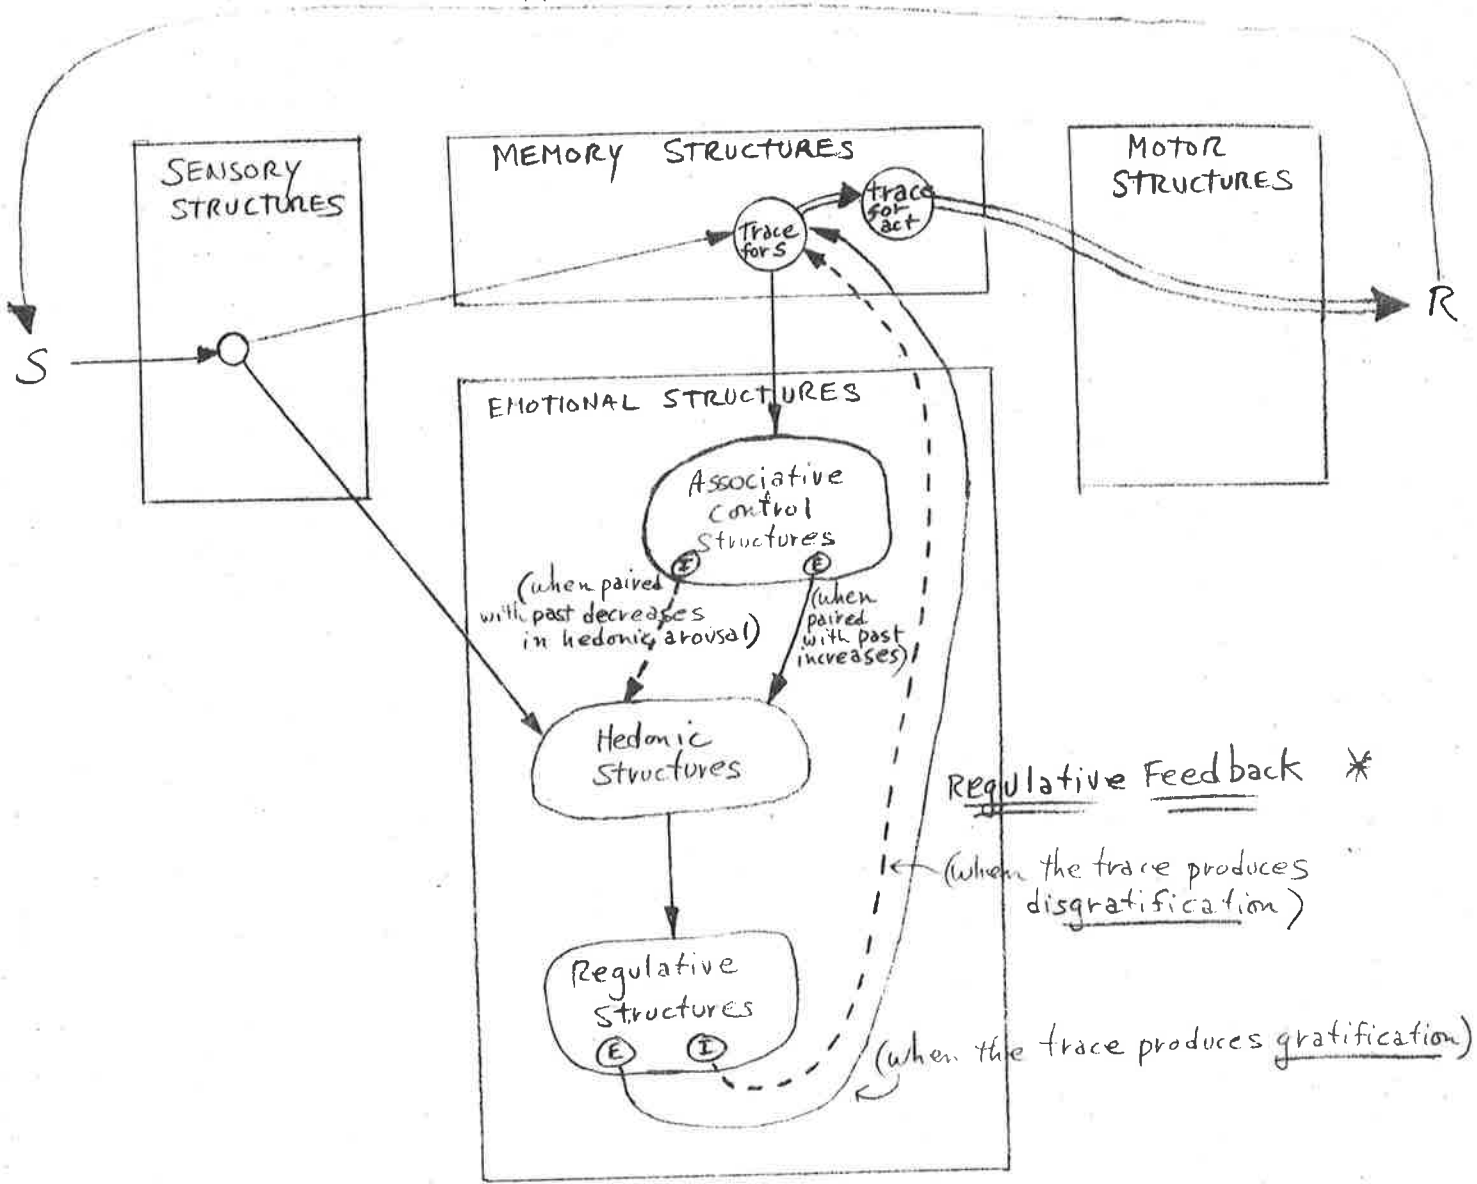 SENSORY
STRUCTURES
MEMORY STRUCTURES
Trace
for S
trace
for
act
MOTOR
STRUCTURES
S
R
EMOTIONAL STRUCTURES
Associative
control
structures
I
E
(when paired
with past decreases
in hedonic arousal)
(when
paired
with past
increases)
Hedonic
Structures
Regulative Feedback *
(when the trace produces
disgratification)
Regulative
Structures
E
I
(when the trace produces gratification)